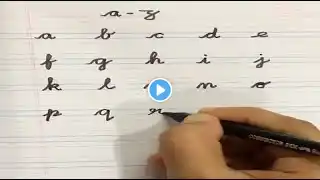 a - z
a b c d e
f g h i j
k l n o
p q r